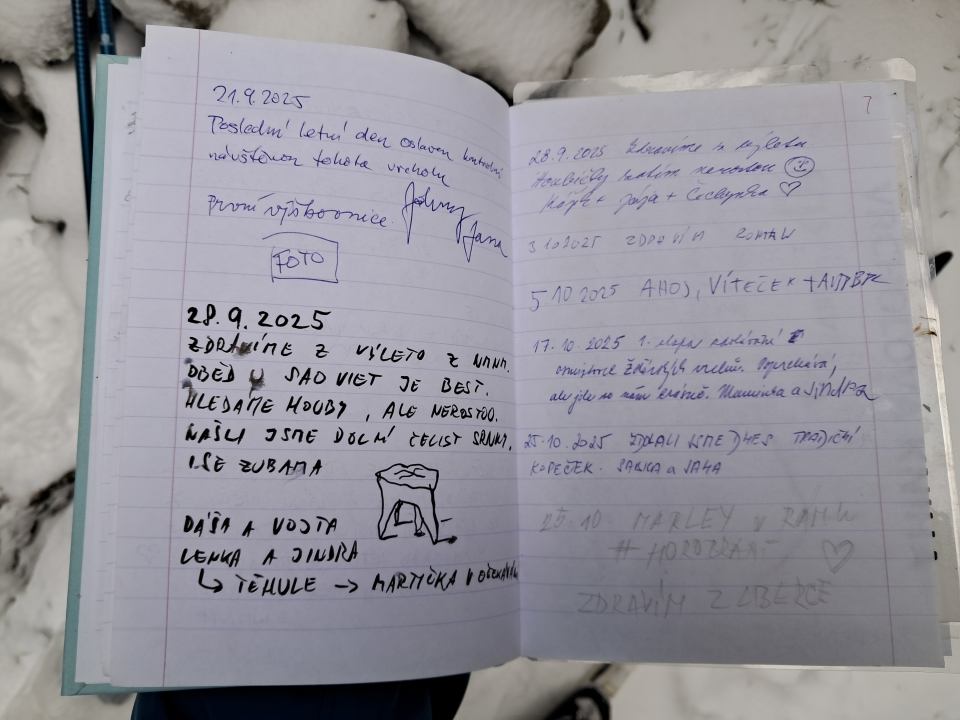 21.9.2025
Poslední letní den oslaven kontrolní
návštěvou tohoto vrcholu
První výškovnice. Johny
Jana
FOTO
28.9.2025
ZDRAVÍME Z VÝLETO Z
OBĚD U SAO VIET JE BEST.
HLEDÁME HOUBY, ALE NEROSTOU.
NAŠLI JSME DOLNÍ ČELIST SRNKY,
I SE ZUBAMA
DÁŠA A VOJTA
LENKA A JINDRA
↳ TĚHULE → MARTIČKA V OČEKÁVÁNÍ
7
28.9.2025 Zdravíme z výletu
Houbičky zatím nerostou
Kája + Jája +
3.10.2025 ZDRAVÍM ROMAN
5.10.2025 AHOJ, VÍTEČEK +
17.10.2025 1. etapa
Žďárských vrchů.
ale jde se nám krásně. Maminka a JINDRA
25.10.2025 ZDOLALI JSME DNES TRADIČNÍ
KOPEČEK. a
25.10 MARLEY V
#
ZDRAVÍM Z LIBERCE